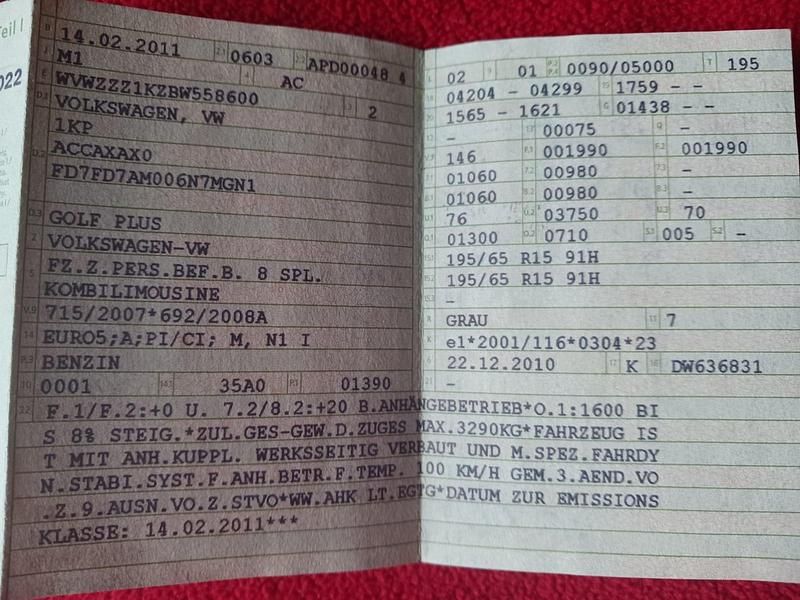 Teil I
022
B 14.02.2011 2.1 0603 2.2 APD00048 4
J M1 4 AC
E WVWZZZ1KZBW558600 3 2
D.1 VOLKSWAGEN, VW
1KP
D.2 ACCAXAX0
FD7FD7AM006N7MGN1
D.3 GOLF PLUS
2 VOLKSWAGEN-VW
5 FZ.Z.PERS.BEF.B. 8 SPL.
KOMBILIMOUSINE
V.9 715/2007*692/2008A
14 EURO5;A;PI/CI; M, N1 I
P.3 BENZIN
10 0001 14.1 35A0 P.1 01390
L 02 9 01 P.2 P.4 0090/05000 T 195
18 04204 - 04299 19 1759 - -
20 1565 - 1621 G 01438 - -
12 - 13 00075 Q -
V.7 146 F.1 001990 F.2 001990
7.1 01060 7.2 00980 7.3 -
8.1 01060 8.2 00980 8.3 -
U.1 76 U.2 03750 U.3 70
O.1 01300 O.2 0710 S.1 005 S.2 -
15.1 195/65 R15 91H
15.2 195/65 R15 91H
15.3 -
R GRAU 11 7
K e1*2001/116*0304*23
6 22.12.2010 17 K 16 DW636831
21 -
22 F.1/F.2:+0 U. 7.2/8.2:+20 B.ANHÄNGEBETRIEB*O.1:1600 BI
S 8% STEIG.*ZUL.GES-GEW.D.ZUGES MAX.3290KG*FAHRZEUG IS
T MIT ANH.KUPPL. WERKSSEITIG VERBAUT UND M.SPEZ.FAHRDY
N.STABI.SYST.F.ANH.BETR.F.TEMP. 100 KM/H GEM.3.AEND.VO
.Z.9.AUSN.VO.Z.STVO*WW.AHK LT.EGTG*DATUM ZUR EMISSIONS
KLASSE: 14.02.2011***